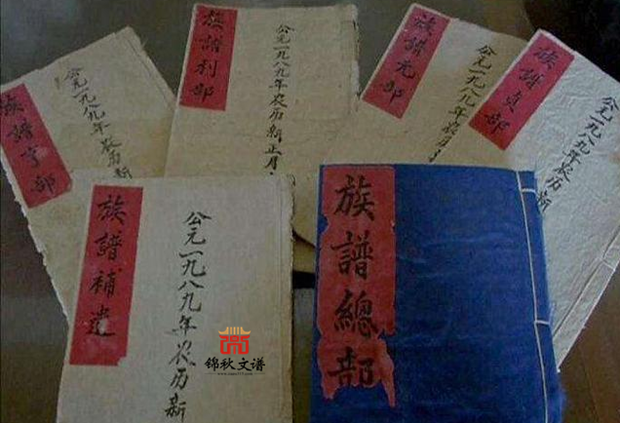 族譜亨部
公元一九八九年农历新
族譜利部
公元一九八九年农历新正月
族譜元部
公元一九八九年农历
族譜貞部
公元一九八九年农历新
族譜補遗
公元一九八九年农历新
族譜總部
锦秋文谱